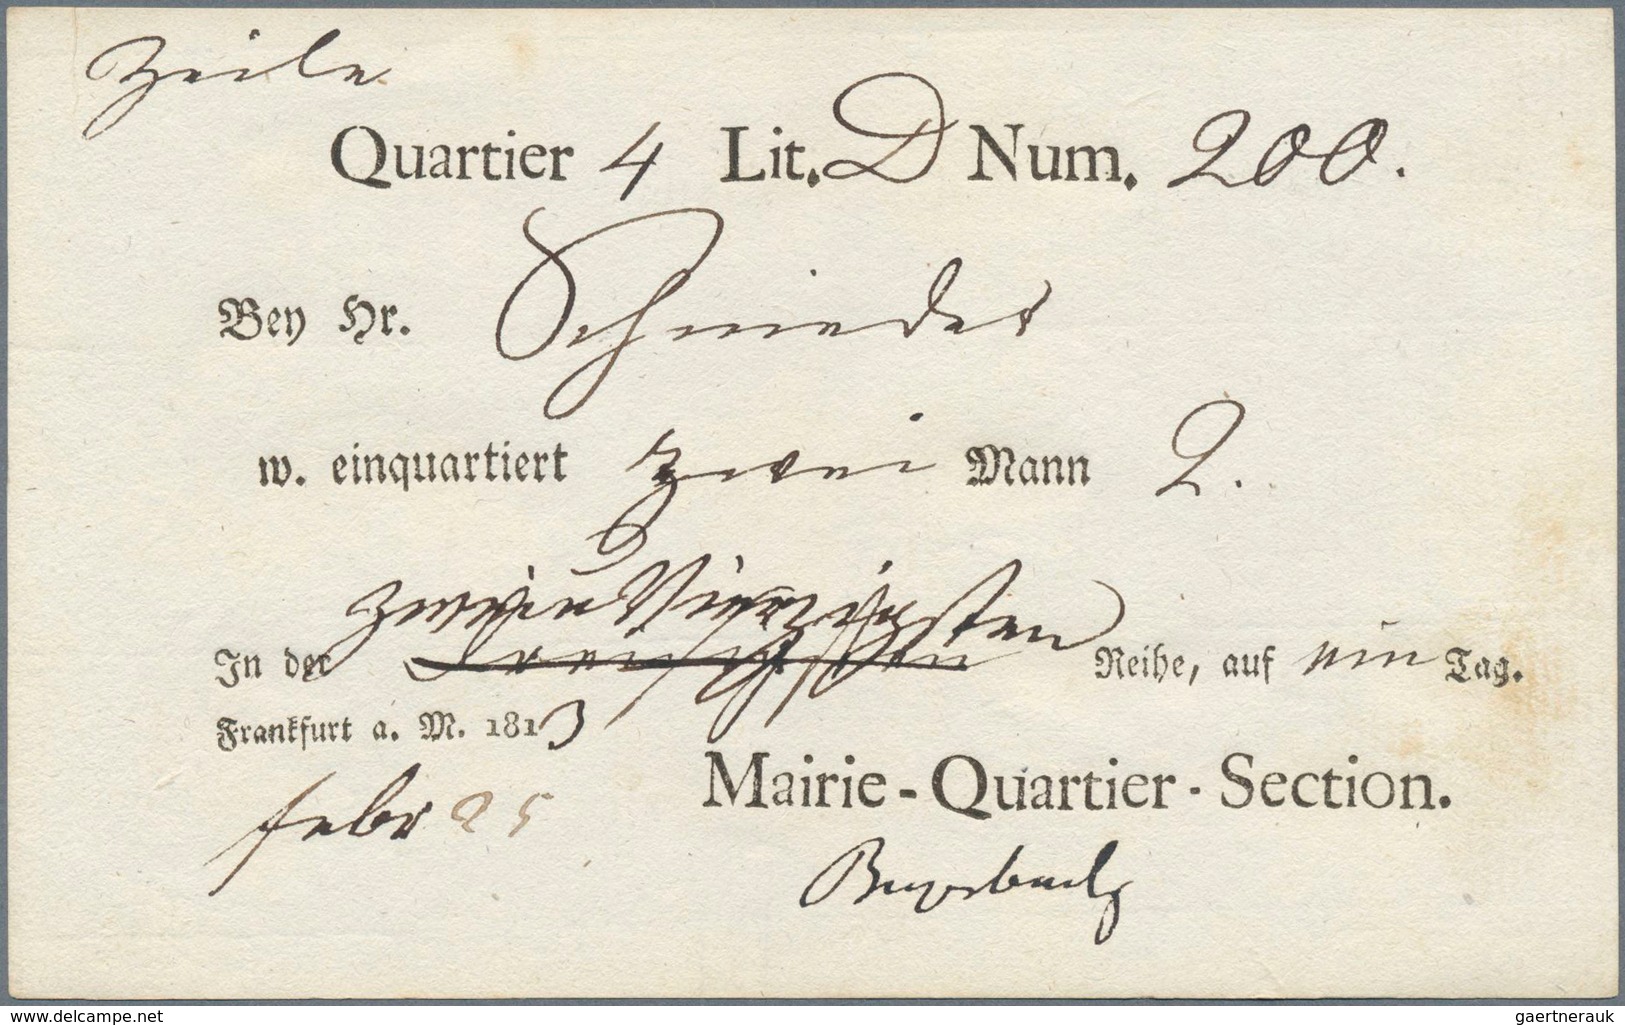 Zeile
Quartier 4 Lit. D Num. 200.
Bey Hr. Schmieder
w. einquartiert zwei Mann 2.
zwei u Vierzigsten
In der Reihe, auf ein Tag.
Frankfurt a. M. 1813
febr 25
Mairie-Quartier-Section.
www.delcampe.net
gaertnerauk